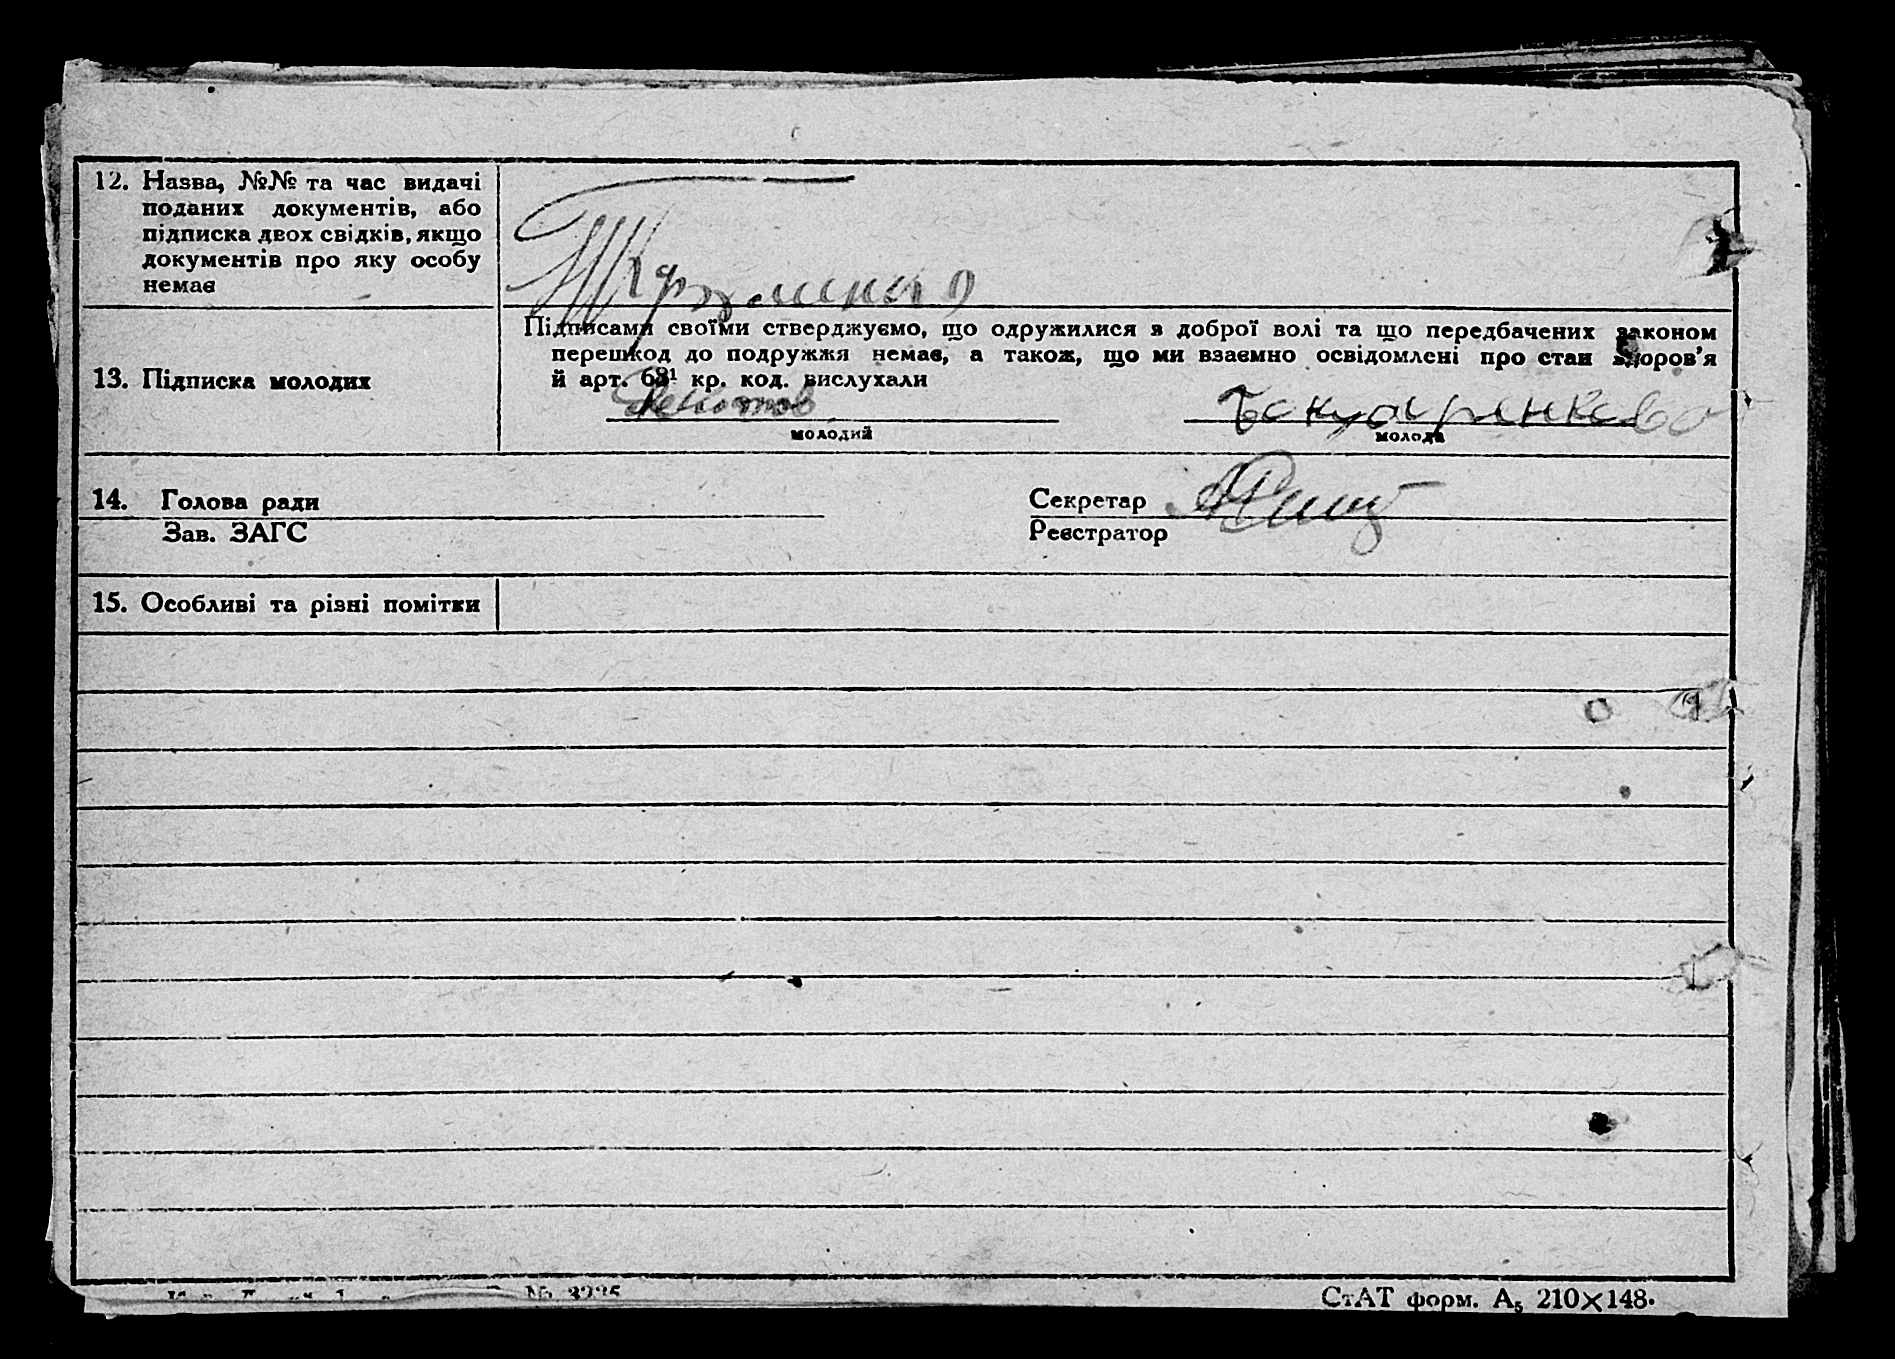 12. Назва, №№ та час видачі
поданих документів, або
підписка двох свідків, якщо
документів про яку особу
немає
Підписами своїми стверджуємо, що одружилися з доброї волі та що передбачених законом
перешкод до подружжя немає, а також, що ми взаємно освідомлені про стан здоров'я
й арт. 68¹ кр. код. вислухали
13. Підписка молодих
молодий
молода
14. Голова ради
Секретар
Зав. ЗАГС
Реєстратор
15. Особливі та різні помітки
СтАТ форм. А₅ 210×148.